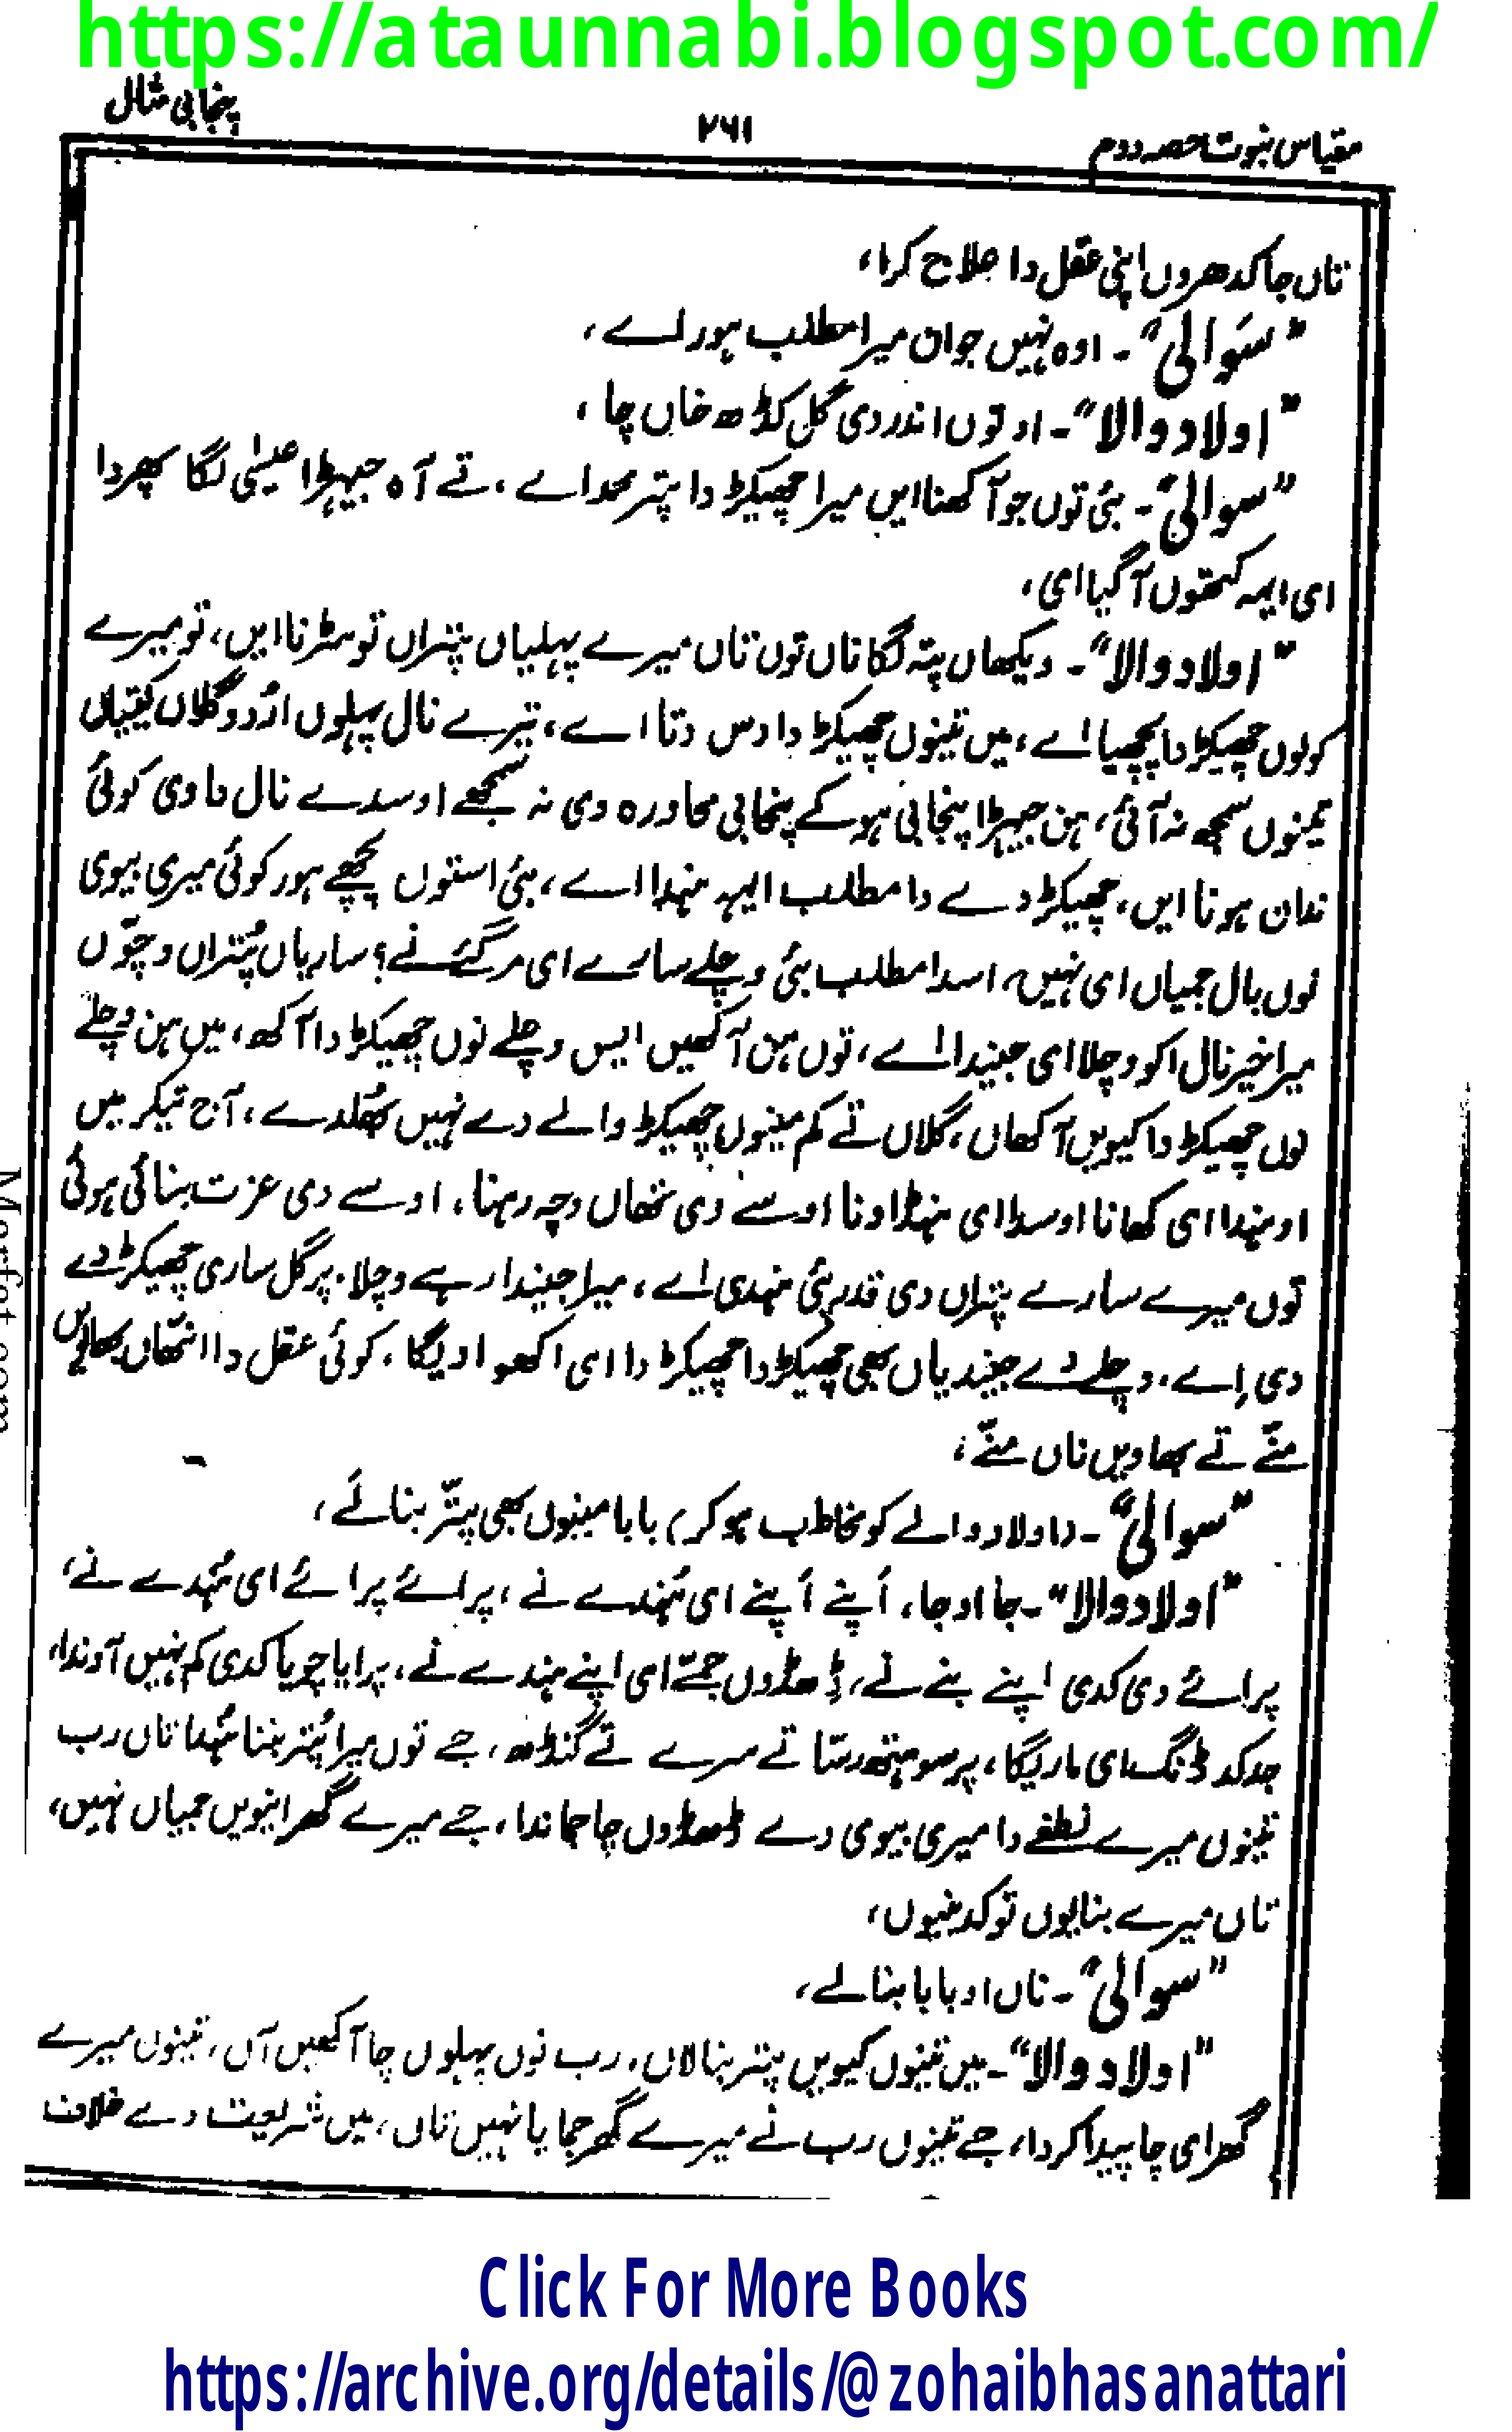 https://ataunnabi.blogspot.com/
مقیاس نبوت حصہ دوم
۲۶۱
پنجابی مثال
تاں جا کدھروں اپنی عقل دا علاج کرا،
"سَوالی"۔ اوہ نہیں جوان میرا مطلب ہور اے،
"اولاد والا"۔ او توں اندر دی گل کڈھ خاں چا،
"سوالی"۔ بئی توں جو آکھنا ایں میرا چھیکڑ دا پتر محمد اے، تے آہ جیہڑا عیسیٰ لگا پھردا
ای ایہہ کتھوں آ گیا ای،
"اولاد والا"۔ ویکھاں پتہ لگا ناں توں تاں میرے پہلیاں پتراں تو سڑنا ایں، تو میرے
کولوں چھیکڑ دا پچھیا اے، میں تینوں چھیکڑ دا دس دتا اے، تیرے نال پہلوں اُردو گلاں کیتیاں
تینوں سمجھ نہ آئی، ہن جیہڑا پنجابی ہو کے پنجابی محاورہ وی نہ سمجھے اوسدے نال دا وی کوئی
ندان ہونا ایں، چھیکڑ دے دا مطلب ایہہ ہندا اے، بئی استوں پچھے ہور کوئی میری بیوی
نوں بال جمیاں ای نہیں، اسدا مطلب بئی وچلے سارے ای مر گئے نے؟ ساریاں پُتراں وچوّں
میرا خیر نال اکو وچلا ای جیندا اے، توں ہن آکھیں ایس وچلے نوں چھیکڑ دا آکھ، میں ہن وچلے
نوں چھیکڑ دا کیویں آکھاں، گلاں تے کم مینوں چھیکڑ والے دے نہیں بھُلدے، آج تیکر میں
اوہندا ای کھانا اوسدا ای ہنڈاونا اوسے دی تھاں وچہ رہنا، اوسے دی عزت بنائی ہوئی
توں میرے سارے پتراں دی قدر پئی ہندی اے، میرا جیندا رہے وچلا. پر گل ساری چھیکڑ دے
دی اِے. وچلے دے جیندیاں بھی چھیکڑ دا چھیکڑ دا ای اکھواویگا، کوئی عقل دا انھّاں بھانویں
منّے تے بھاویں ناں منّے،
"سوالی"۔ (اولاد والے کو مخاطب ہو کر) بابا مینوں بھی پتّر بنا لے،
"اولاد والا"۔ جا او جا، اَپنے اَپنے ای ہُندے نے، پرائے پرائے ای ہُندے نے،
پرائے وی کدی اپنے بنے نے، ڈِھڈوں جمّے ای اپنے ہندے نے، پرایا چوپا کدی کم نہیں آوندا،
جد کد ڈنگ ای ماریگا، پر سو ہتھ رسّا تے سرے تے گنڈھ، جے توں میرا پُتر بننا ہُندا تاں رب
تینوں میرے نطفے دا میری بیوی دے ڈھڈوں چا جماندا، جے میرے گھر اینویں جمیاں نہیں،
تاں میرے بنایوں تو کد بنیوں،
"سوالی"۔ ناں او بابا بنا لے،
"اولاد والا"۔ میں تینوں کیویں پتر بنا لاں، رب نوں پہلوں چا آکھیں آں، تینوں میرے
گھر ای چا پیدا کردا، جے تینوں رب نے میرے گھر جمایا نہیں تاں، میں شریعت دے خلاف
Marfat.com
Click For More Books
https://archive.org/details/@zohaibhasanattari